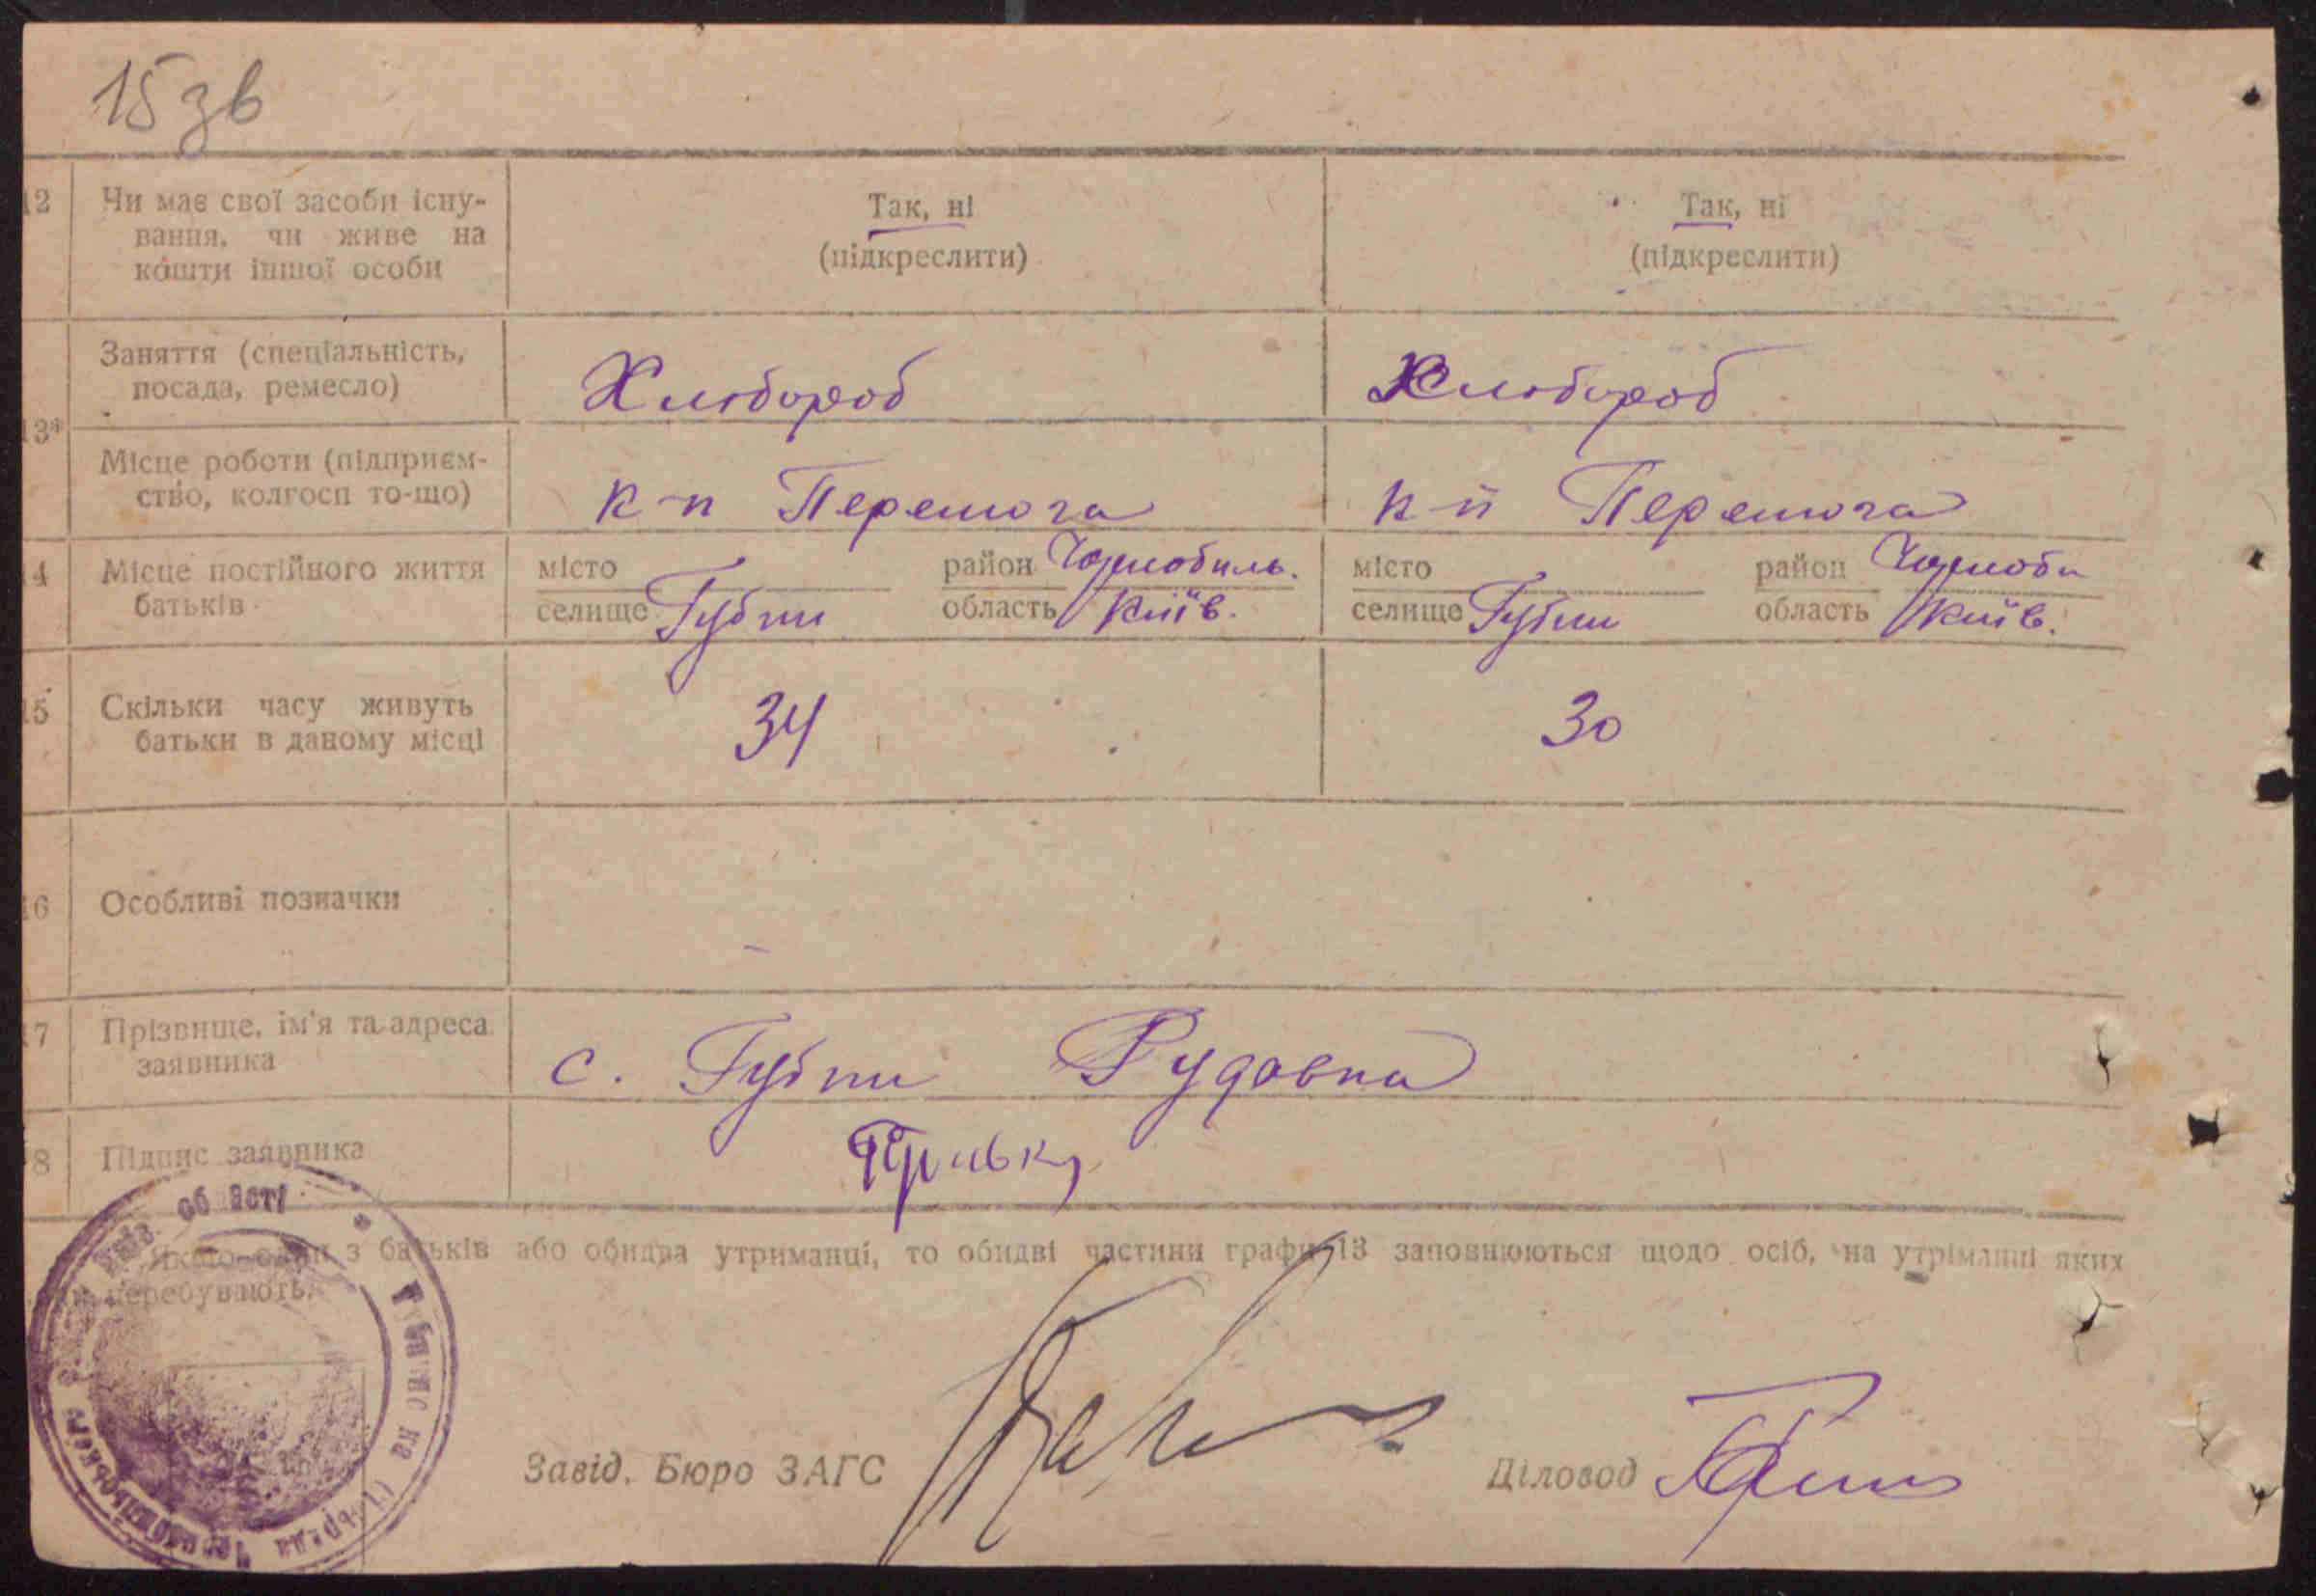 15 зв
12 Чи має свої засоби існу- Так, ні Так, ні
вання, чи живе на (підкреслити) (підкреслити)
кошти іншої особи
Заняття (спеціальність, Хлібороб Хлібороб
посада, ремесло)
13*
Місце роботи (підприєм- к-п Перемога к-п Перемога
ство, колгосп то-що)
14 Місце постійного життя місто район Чорнобиль. місто район Чорноби
батьків селище Губин область Київ. селище Губин область Київ.
15 Скільки часу живуть 34 30
батьки в даному місці
16 Особливі позначки
17 Прізвище, ім'я та адреса с. Губин
заявника
18 Підпис заявника
Якщо один з батьків або обидва утриманці, то обидві частини графи 13 заповнюються щодо осіб, на утріманні яких
перебувають.
Завід. Бюро ЗАГС Діловод